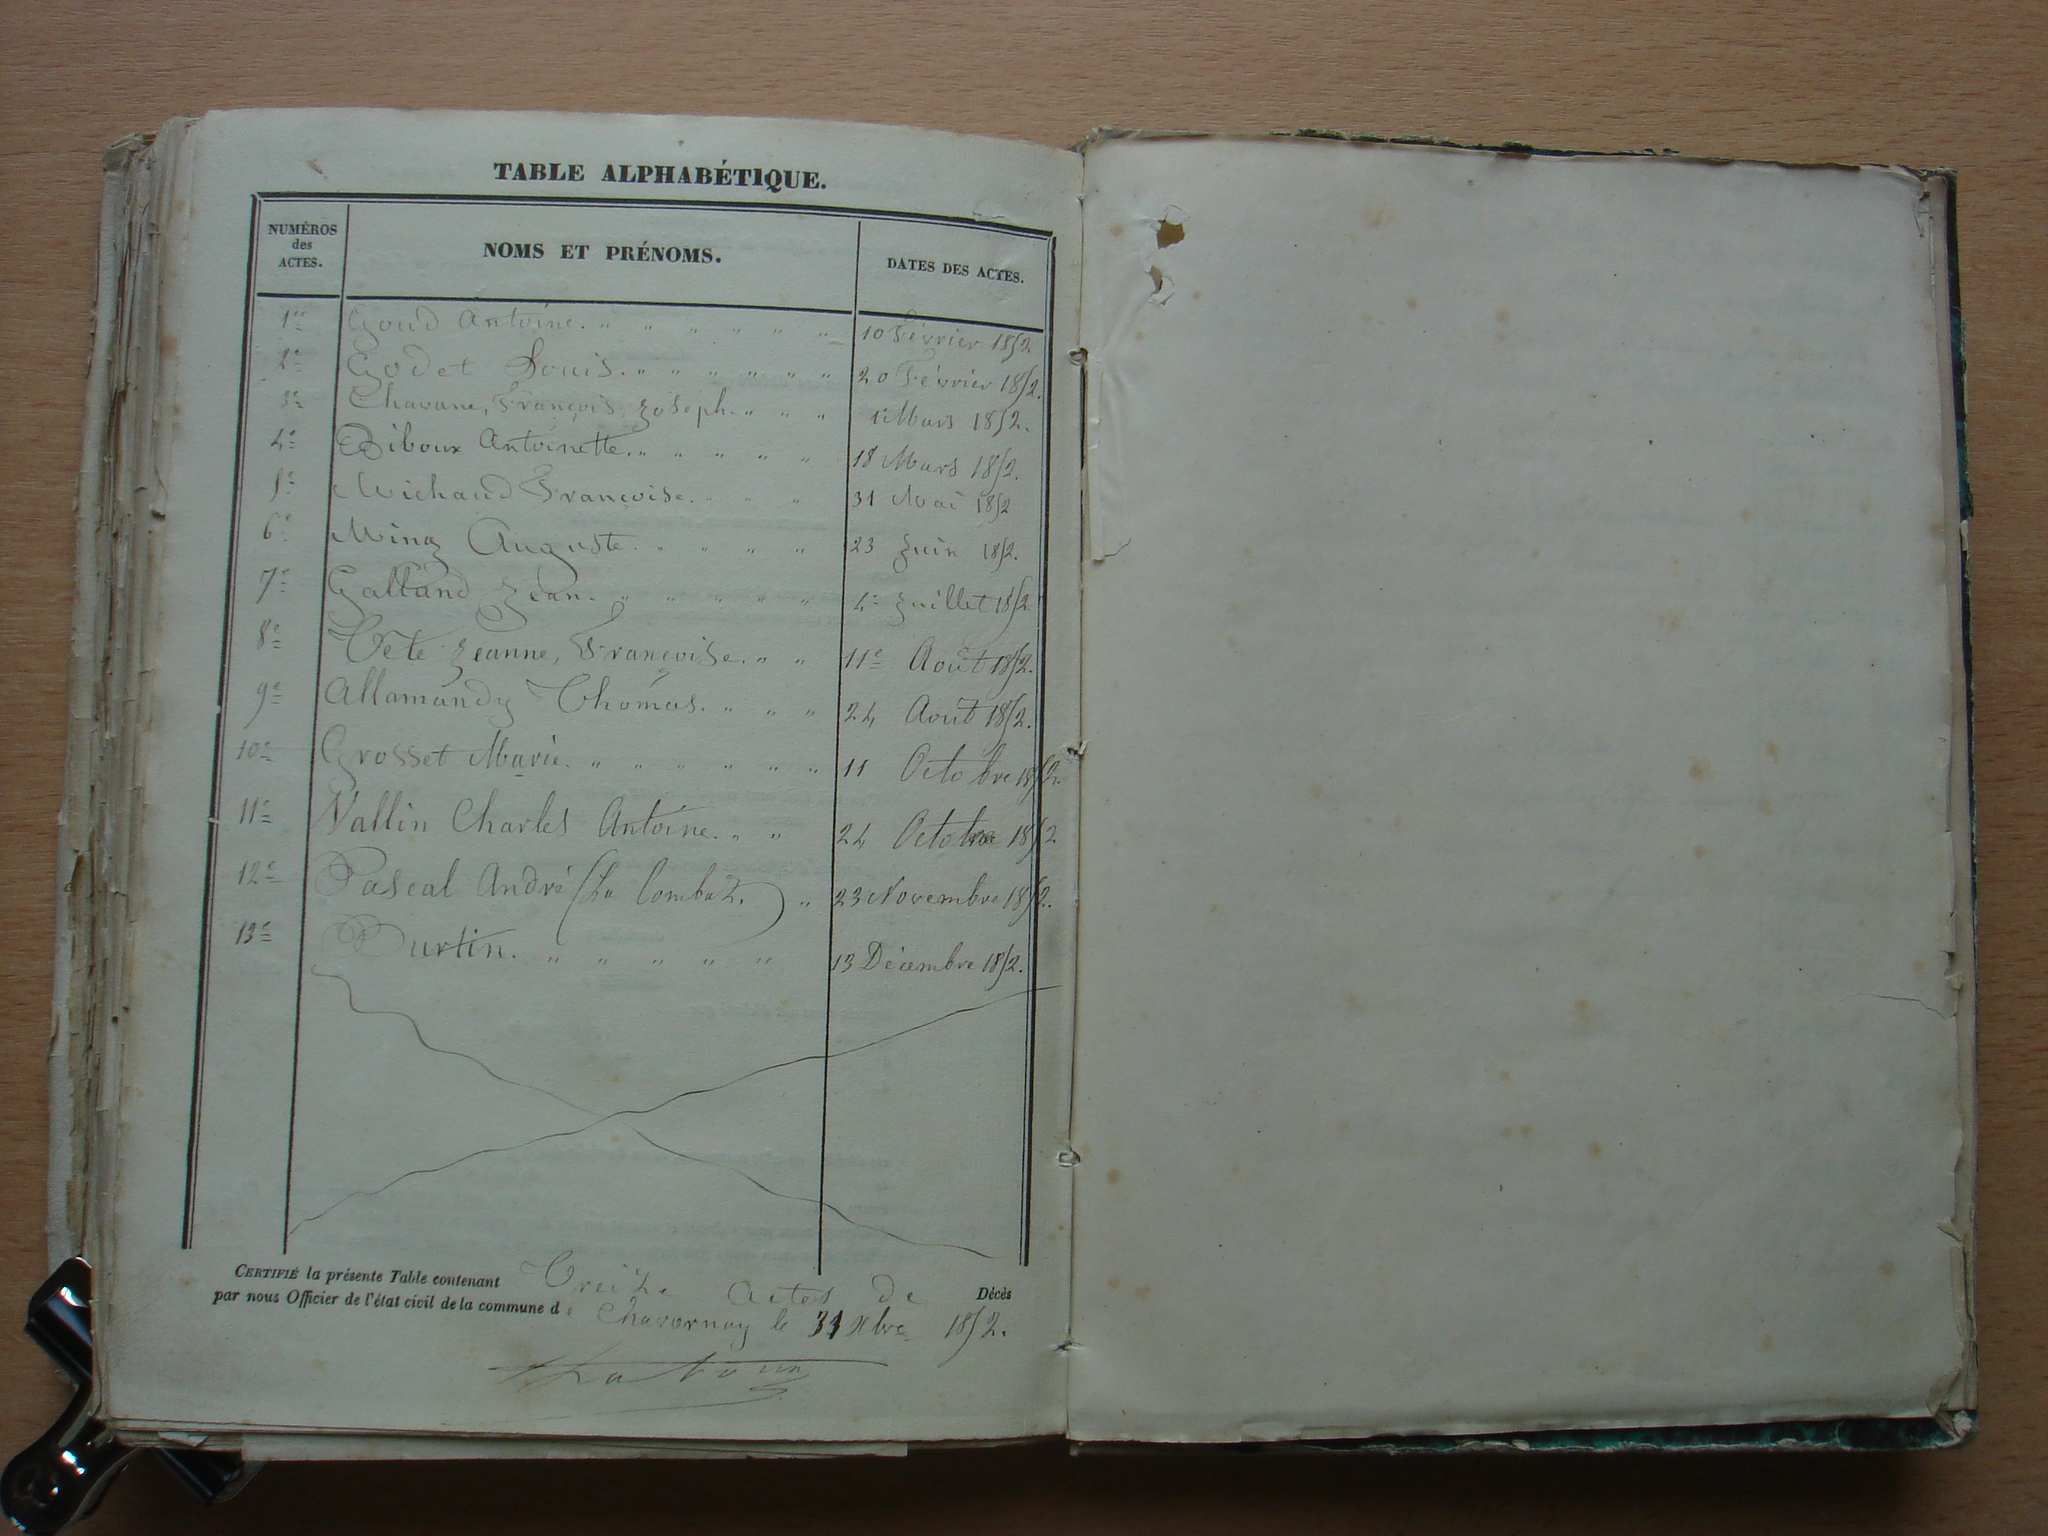 TABLE ALPHABÉTIQUE.
NUMÉROS des ACTES. NOMS ET PRÉNOMS. DATES DES ACTES.
1er Goud Antoine. " " " " " " 10 Février 1852
2e Godet Louis. " " " " " " 20 Février 1852.
3e Chavane, François Joseph. " " " Mars 1852.
4e Riboux Antoinette. " " " " " 18 Mars 1852.
5e Michaud Françoise. " " " 31 Mai 1852
6e Minq Auguste. " " " " 23 Juin 1852.
7e Galland Jean. " " " " " 4e Juillet 1852
8e Tête Jeanne, Françoise. " " 11e Août 1852.
9e Allamandy Thomas. " " " 24 Août 1852.
10e Grosset Marie. " " " " " " 11 Octobre 1852.
11e Vallin Charles Antoine. " " 24 Octobre 1852
12e Pascal André (La Combaz.) " 23 Novembre 1852.
13e Burtin. " " " " " 13 Décembre 1852.
CERTIFIÉ la présente Table contenant Treize Actes de Décès
par nous Officier de l'état civil de la commune de Chavornay le 31 Xbre 1852.